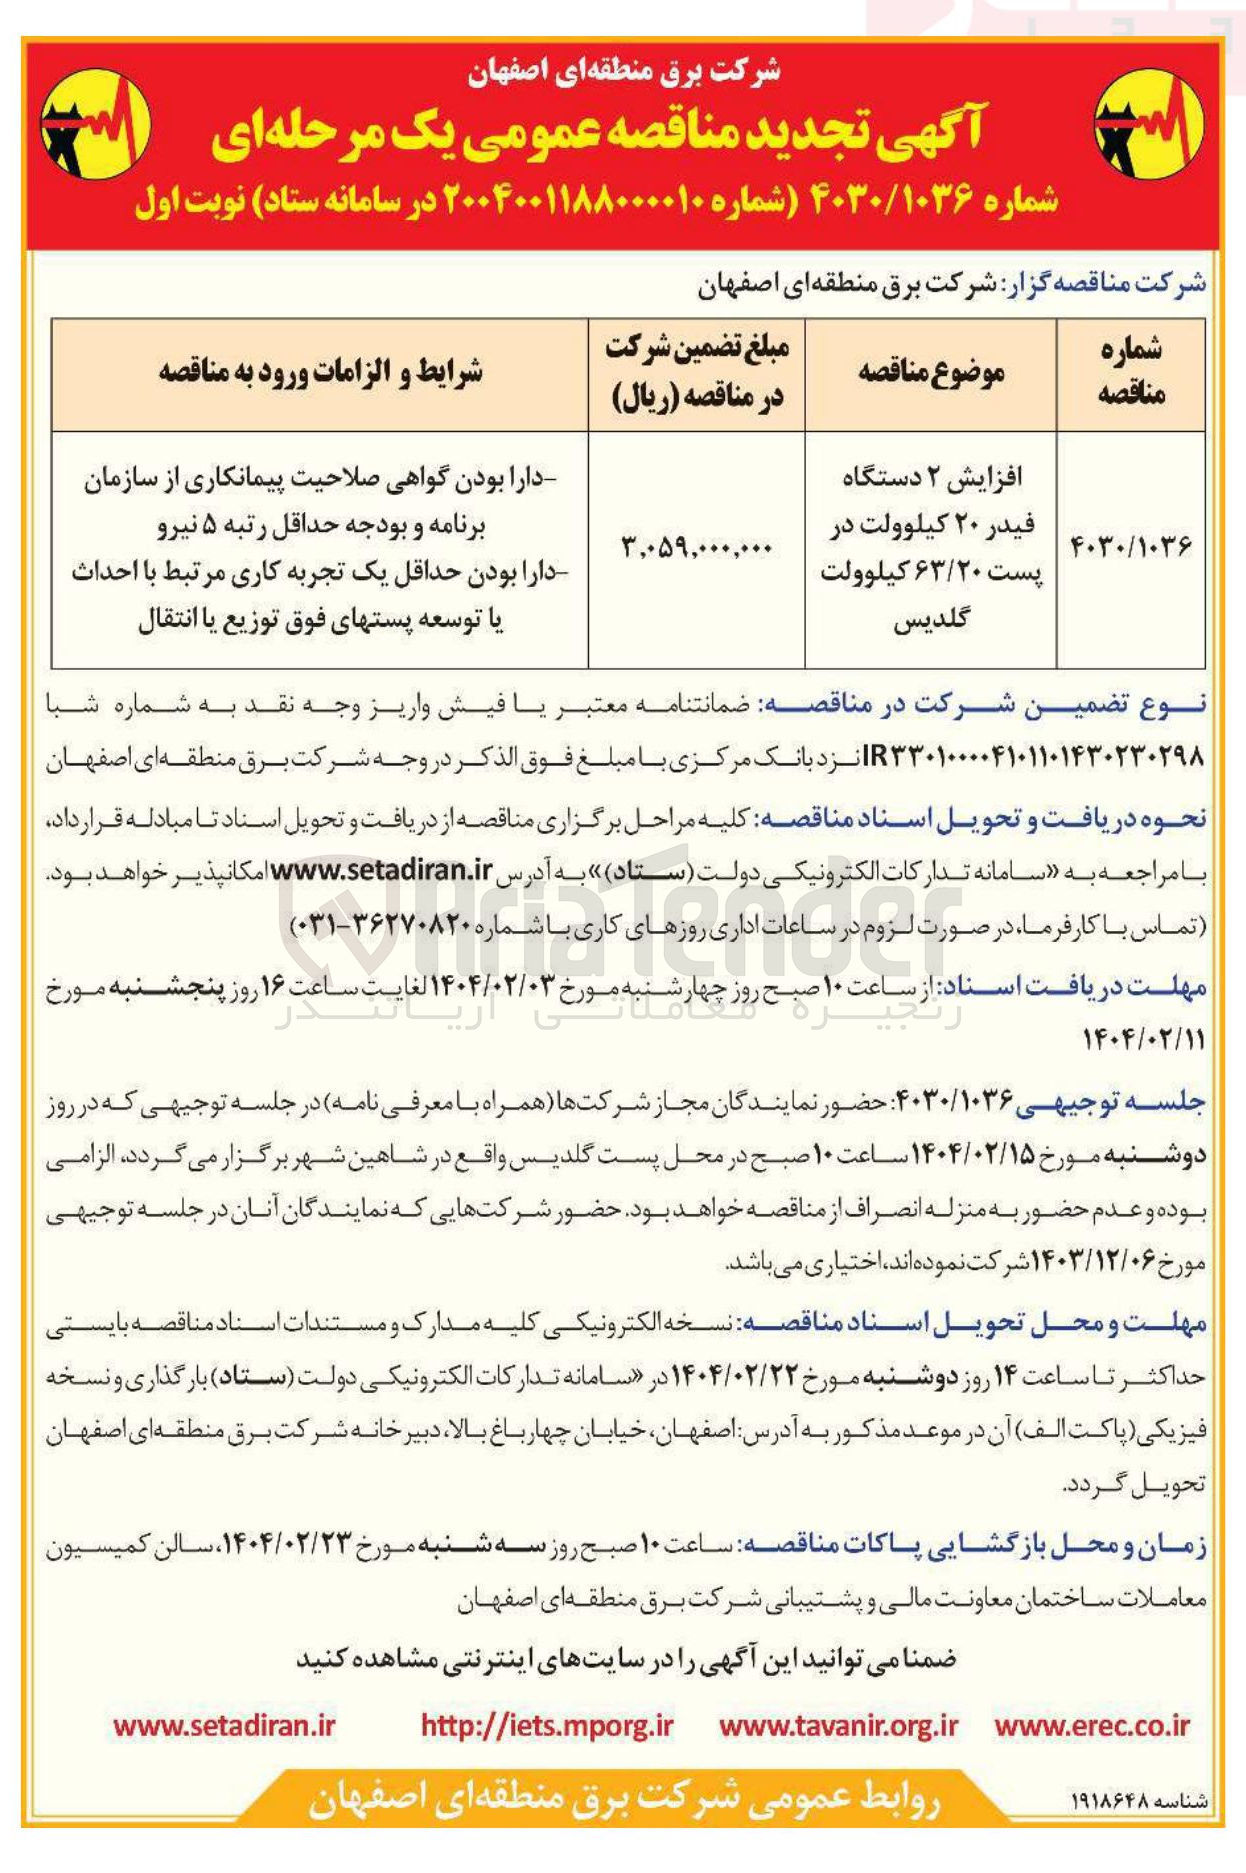 شرکت برق منطقه‌ای اصفهان
آگهی تجدید مناقصه عمومی یک مرحله‌ای
شماره ۴۰۳۰/۱۰۳۶ (شماره ۲۰۰۴۰۰۱۱۸۸۰۰۰۰۱۰ در سامانه ستاد) نوبت اول
شرکت مناقصه‌گزار: شرکت برق منطقه‌ای اصفهان
شماره مناقصه
موضوع مناقصه
مبلغ تضمین شرکت در مناقصه (ریال)
شرایط و الزامات ورود به مناقصه
۴۰۳۰/۱۰۳۶
افزایش ۲ دستگاه
فیدر ۲۰ کیلوولت در
پست ۶۳/۲۰ کیلوولت
گلدیس
۳,۰۵۹,۰۰۰,۰۰۰
-دارا بودن گواهی صلاحیت پیمانکاری از سازمان
برنامه و بودجه حداقل رتبه ۵ نیرو
-دارا بودن حداقل یک تجربه کاری مرتبط با احداث
یا توسعه پستهای فوق توزیع یا انتقال
نوع تضمین شرکت در مناقصه: ضمانتنامه معتبر یا فیش واریز وجه نقد به شماره شبا
IR۳۳۰۱۰۰۰۰۴۱۰۱۱۰۱۴۳۰۲۳۰۲۹۸ نزد بانک مرکزی با مبلغ فوق الذکر در وجه شرکت برق منطقه‌ای اصفهان
نحوه دریافت و تحویل اسناد مناقصه: کلیه مراحل برگزاری مناقصه از دریافت و تحویل اسناد تا مبادله قرارداد،
با مراجعه به «سامانه تدارکات الکترونیکی دولت (ستاد)» به آدرس www.setadiran.ir امکانپذیر خواهد بود.
(تماس با کارفرما، در صورت لزوم در ساعات اداری روزهای کاری با شماره ۳۶۲۷۰۸۲۰-۰۳۱)
AriaTender
زنجیره معاملاتی آریاتندر
مهلت دریافت اسناد: از ساعت ۱۰ صبح روز چهارشنبه مورخ ۱۴۰۴/۰۲/۰۳ لغایت ساعت ۱۶ روز پنجشنبه مورخ
۱۴۰۴/۰۲/۱۱
جلسه توجیهی ۴۰۳۰/۱۰۳۶: حضور نمایندگان مجاز شرکت‌ها (همراه با معرفی نامه) در جلسه توجیهی که در روز
دوشنبه مورخ ۱۴۰۴/۰۲/۱۵ ساعت ۱۰ صبح در محل پست گلدیس واقع در شاهین شهر برگزار می گردد، الزامی
بوده و عدم حضور به منزله انصراف از مناقصه خواهد بود. حضور شرکت‌هایی که نمایندگان آنان در جلسه توجیهی
مورخ ۱۴۰۳/۱۲/۰۶ شرکت نموده‌اند، اختیاری می‌باشد.
مهلت و محل تحویل اسناد مناقصه: نسخه الکترونیکی کلیه مدارک و مستندات اسناد مناقصه بایستی
حداکثر تا ساعت ۱۴ روز دوشنبه مورخ ۱۴۰۴/۰۲/۲۲ در «سامانه تدارکات الکترونیکی دولت (ستاد) بارگذاری و نسخه
فیزیکی (پاکت الف) آن در موعد مذکور به آدرس: اصفهان، خیابان چهارباغ بالا، دبیرخانه شرکت برق منطقه‌ای اصفهان
تحویل گردد.
زمان و محل بازگشایی پاکات مناقصه: ساعت ۱۰ صبح روز سه شنبه مورخ ۱۴۰۴/۰۲/۲۳، سالن کمیسیون
معاملات ساختمان معاونت مالی و پشتیبانی شرکت برق منطقه‌ای اصفهان
ضمنا می توانید این آگهی را در سایت‌های اینترنتی مشاهده کنید
www.erec.co.ir www.tavanir.org.ir http://iets.mporg.ir www.setadiran.ir
شناسه ۱۹۱۸۶۴۸
روابط عمومی شرکت برق منطقه‌ای اصفهان